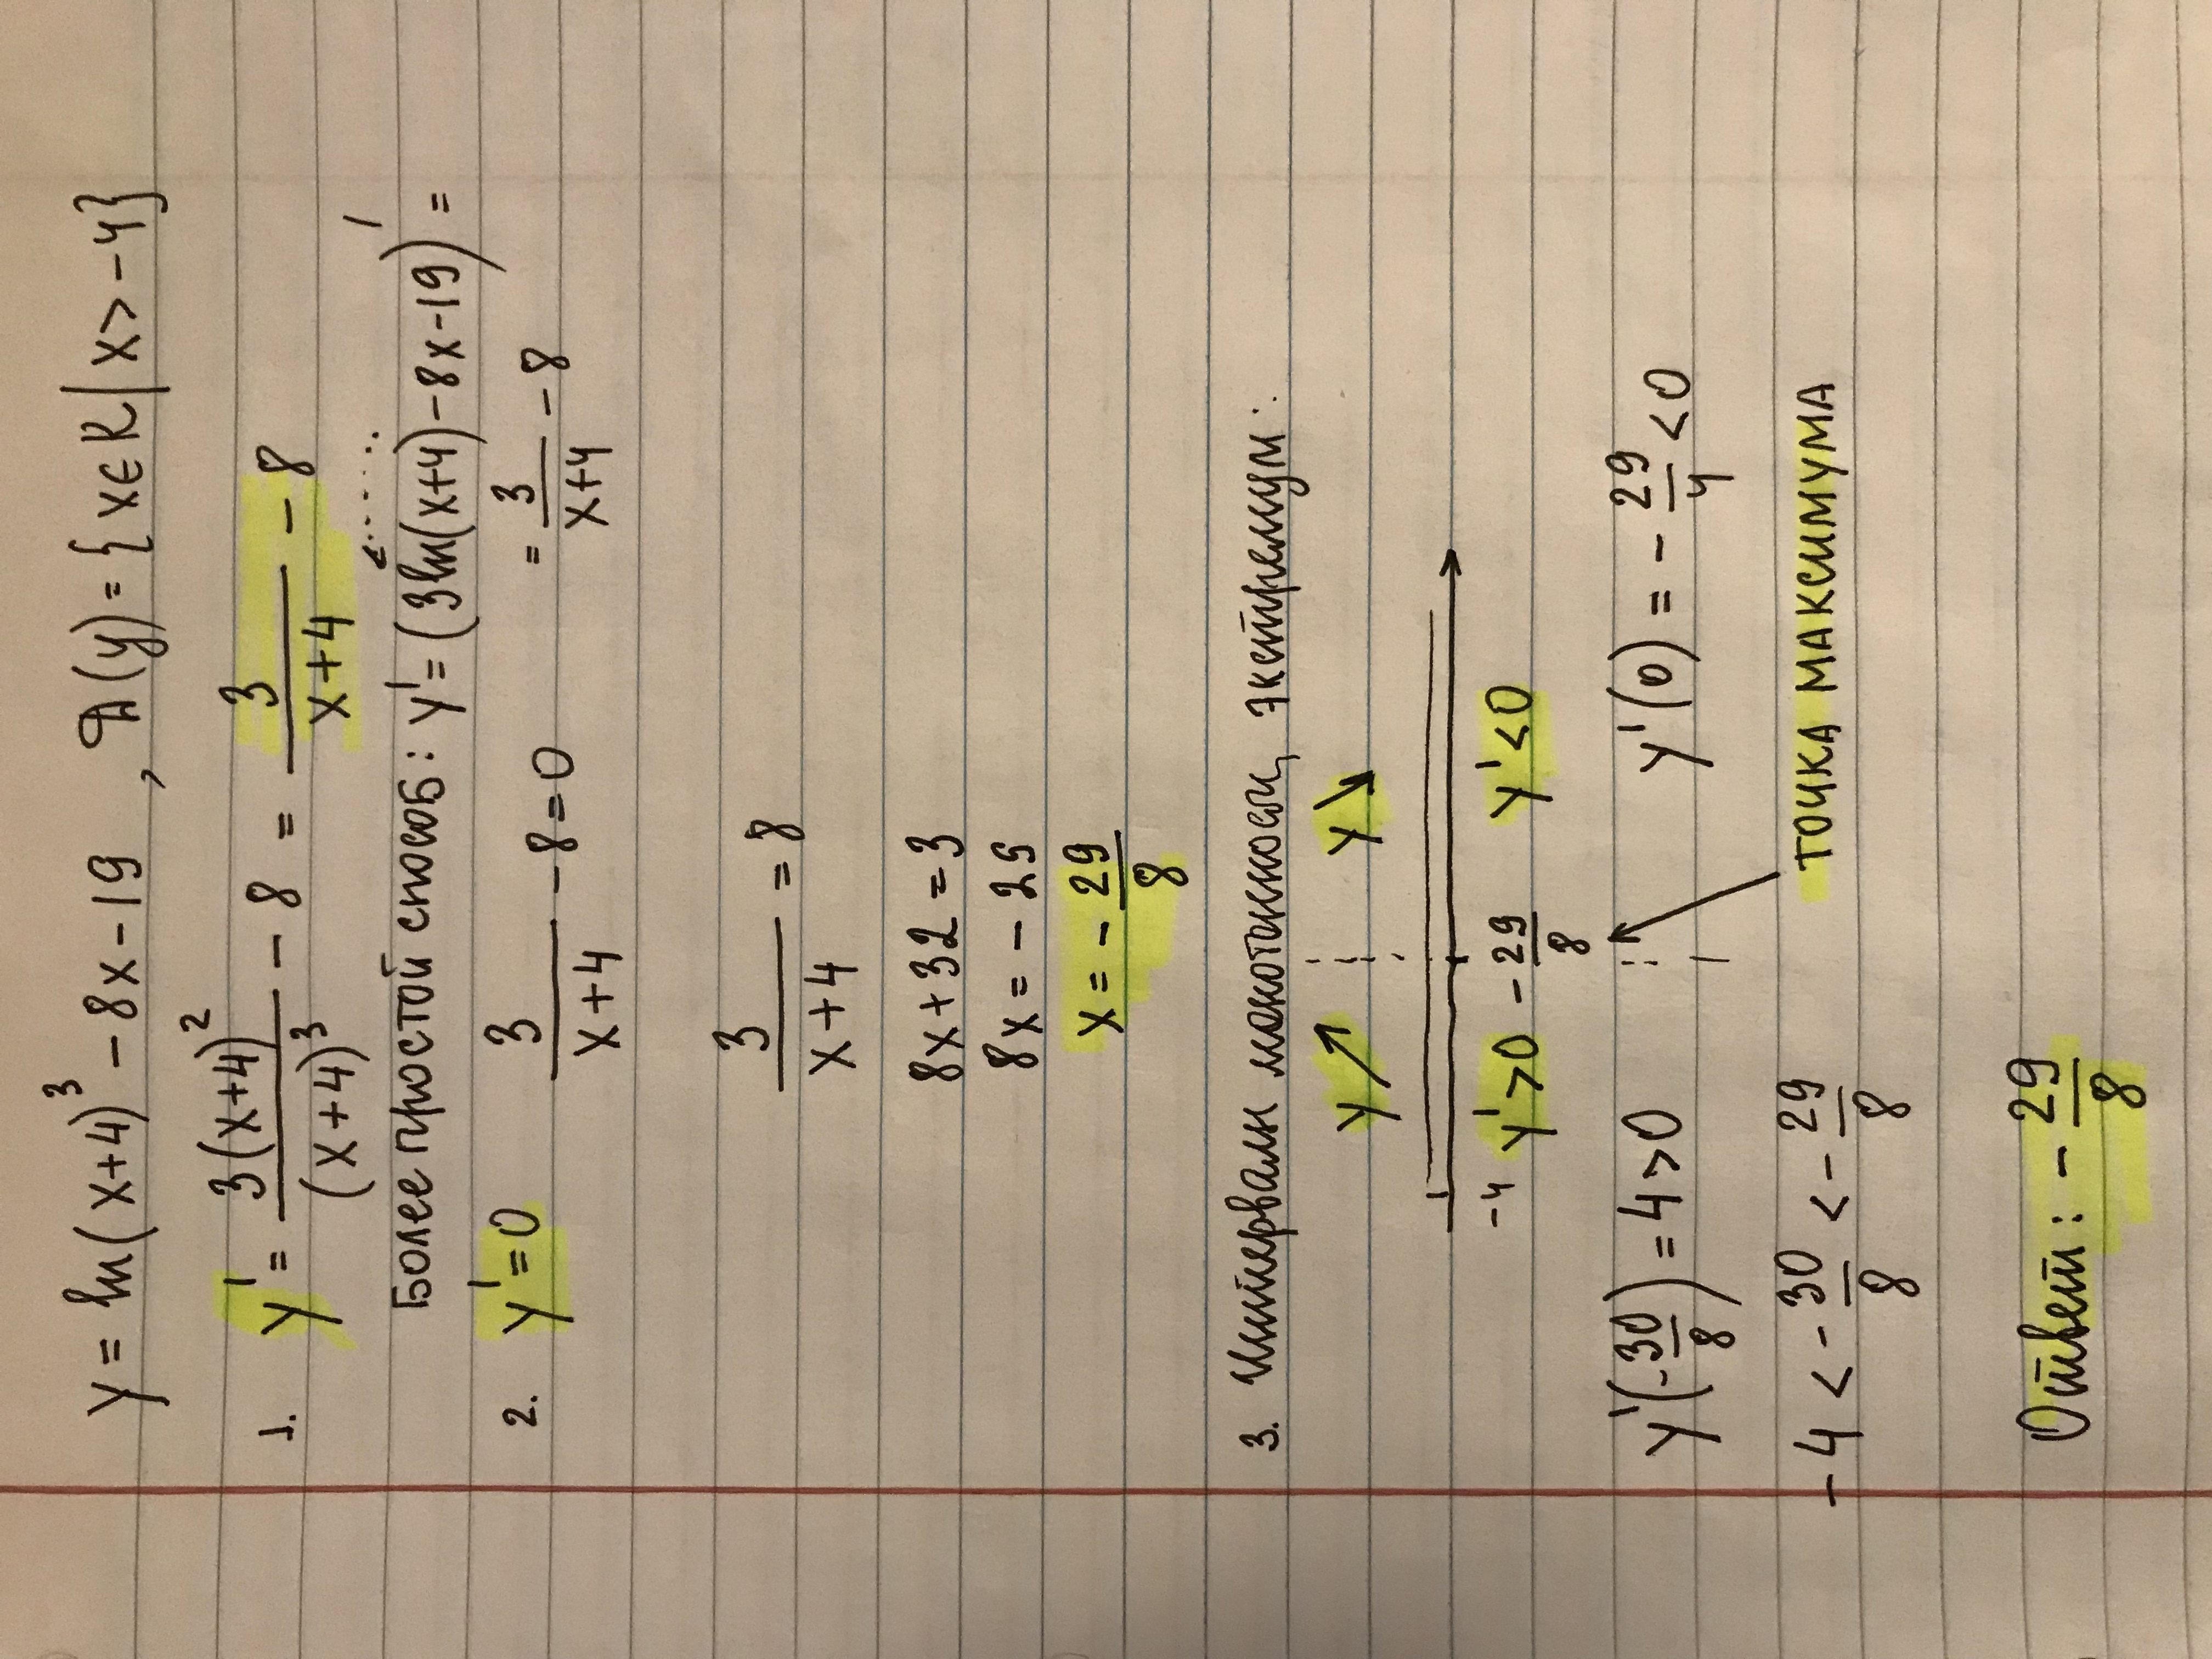 y = ln(x+4)³ - 8x - 19 , D(y) = {x∈R | x > -4}
1. y' = 3(x+4)² / (x+4)³ - 8 = 3 / (x+4) - 8
Более простой способ: y' = (3ln(x+4) - 8x - 19)' =
= 3 / (x+4) - 8
2. y' = 0 3 / (x+4) - 8 = 0
3 / (x+4) = 8
8x + 32 = 3
8x = - 29
x = - 29/8
3. Интервалы монотонности, экстремум:
y ↗ y ↘
-4 y' > 0 - 29/8 y' < 0
y'(-30/8) = 4 > 0 y'(0) = - 29/4 < 0
-4 < - 30/8 < - 29/8
точка максимума
Ответ: - 29/8